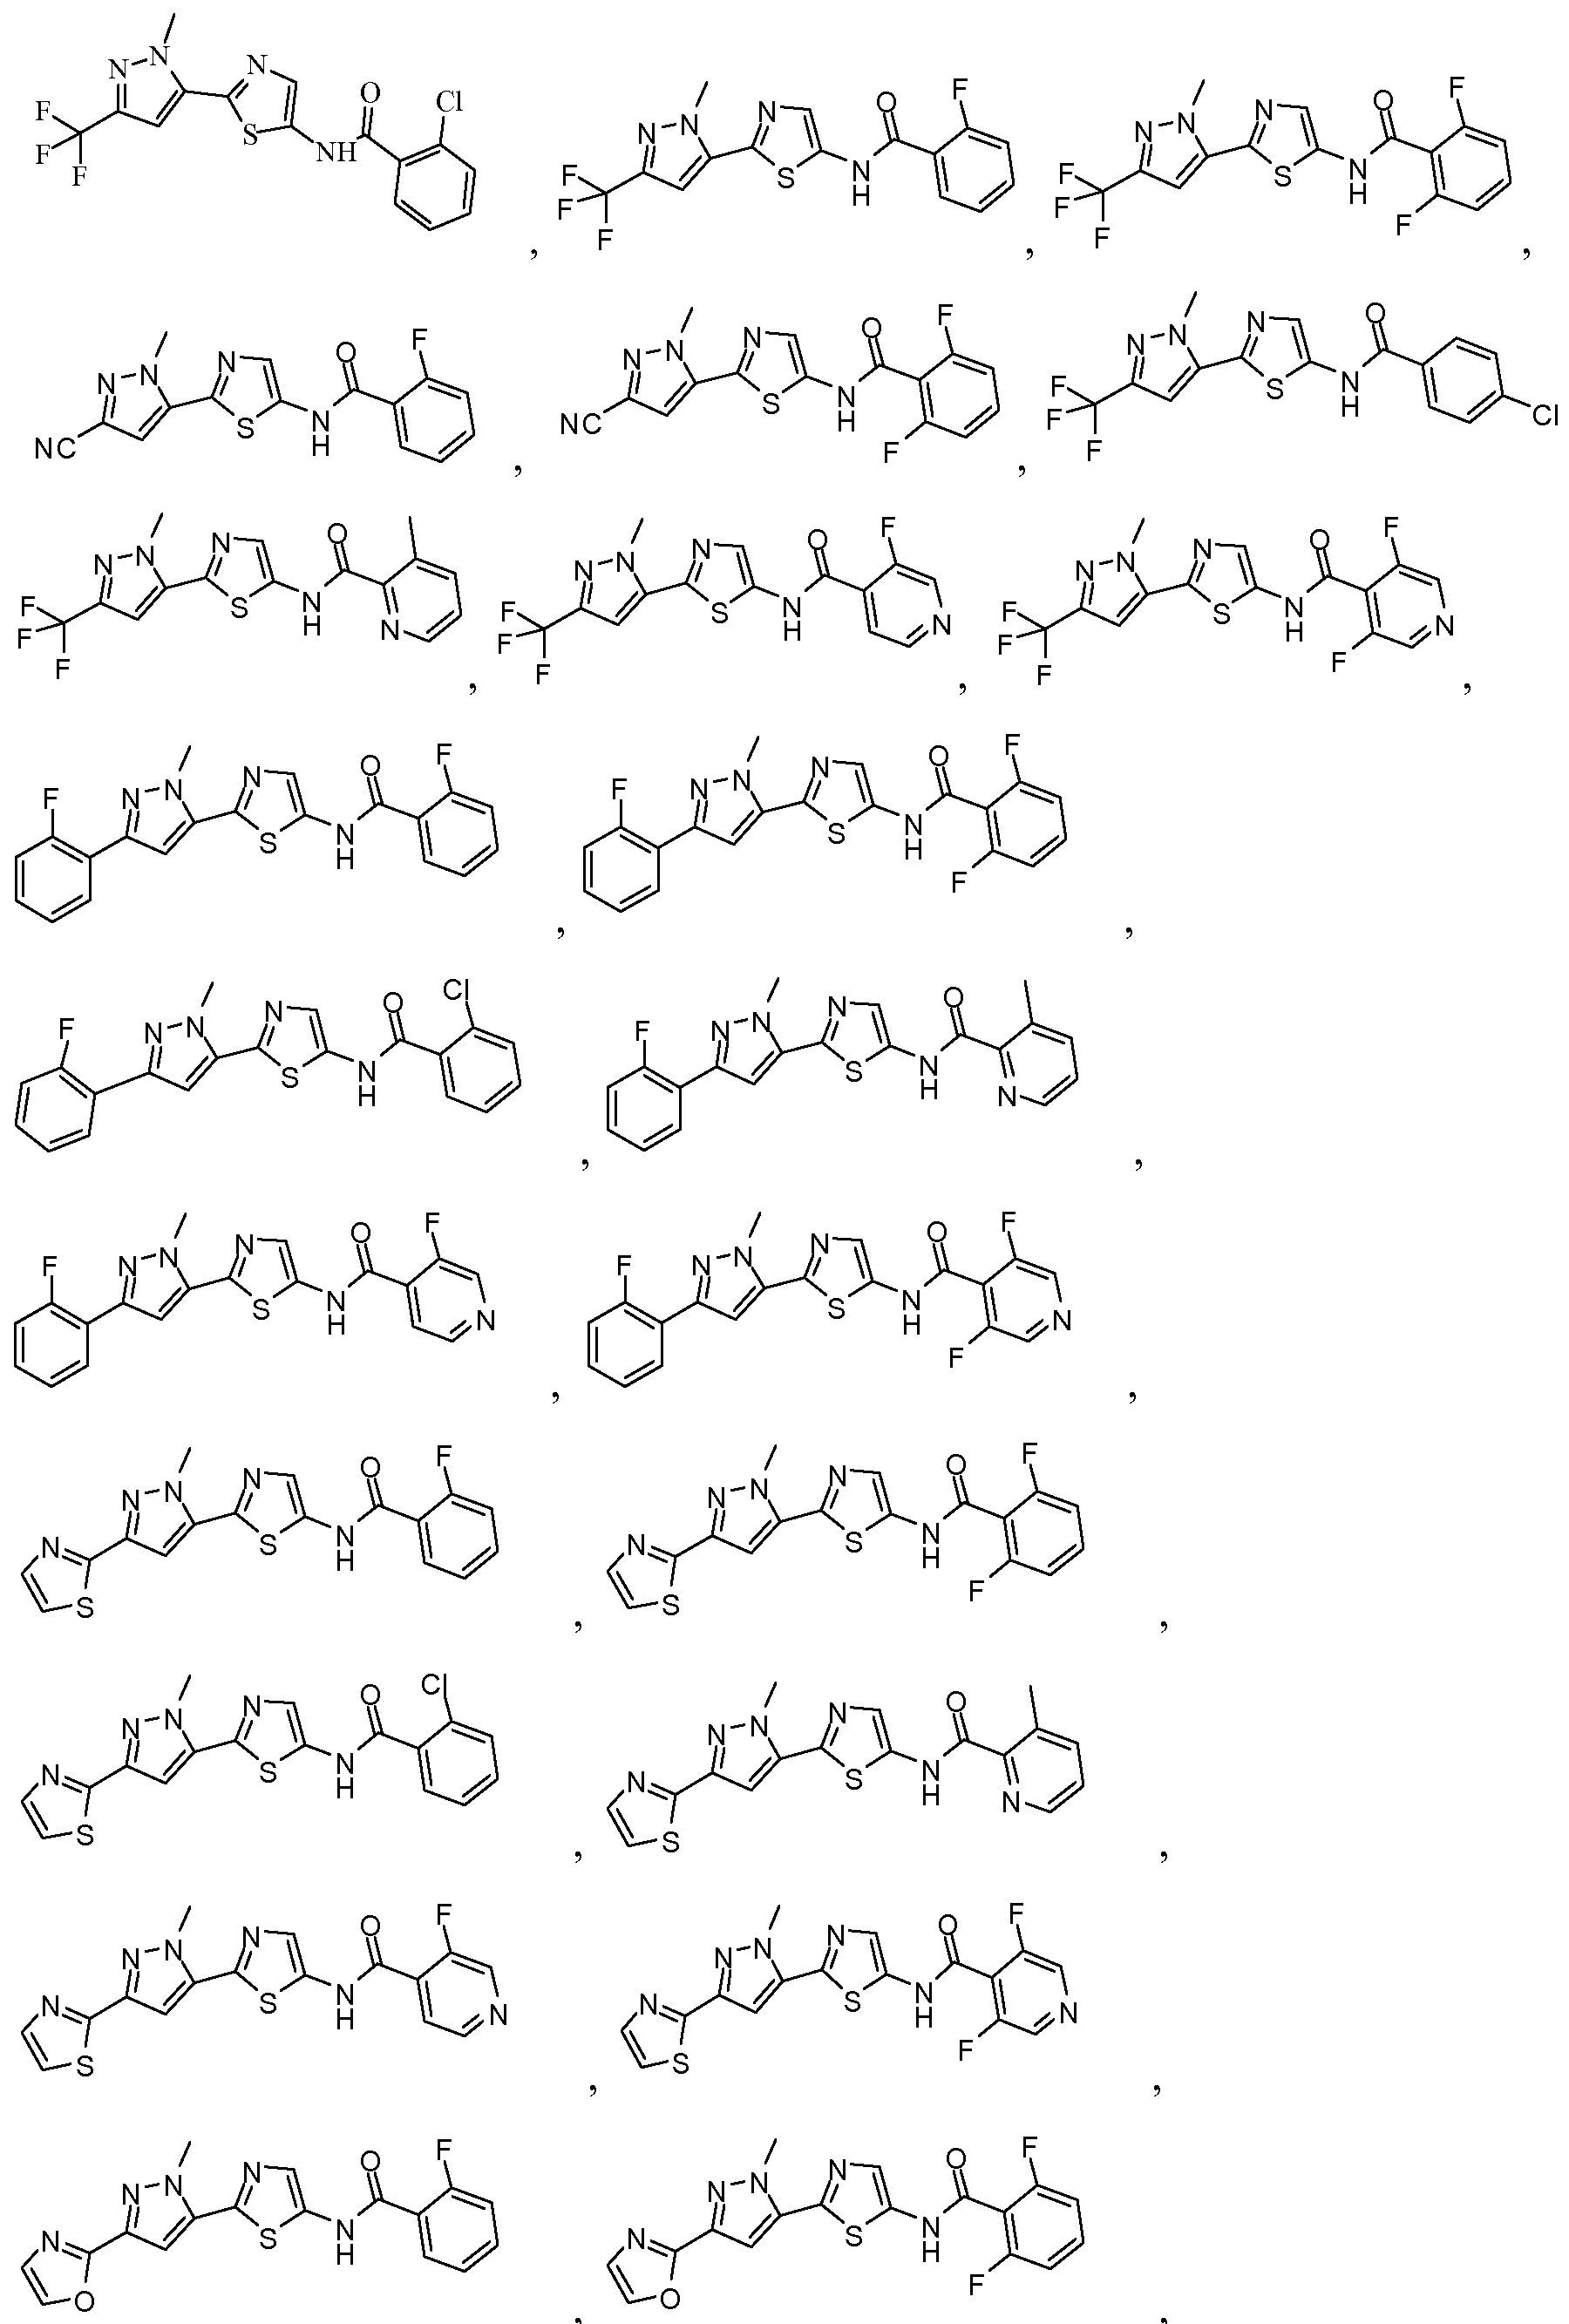 F F F N N N S NH O Cl ,
F F F N N N S N H O F ,
F F F N N N S N H O F F ,
NC N N N S N H O F ,
NC N N N S N H O F F ,
F F F N N N S N H O Cl
F F F N N N S N H O N ,
F F F N N N S N H O F N ,
F F F N N N S N H O F F N ,
F N N N S N H O F ,
F N N N S N H O F F ,
F N N N S N H O Cl ,
F N N N S N H O N ,
F N N N S N H O F N ,
F N N N S N H O F F N ,
N S N N N S N H O F ,
N S N N N S N H O F F ,
N S N N N S N H O Cl ,
N S N N N S N H O N ,
N S N N N S N H O F N ,
N S N N N S N H O F F N ,
N O N N N S N H O F ,
N O N N N S N H O F F ,